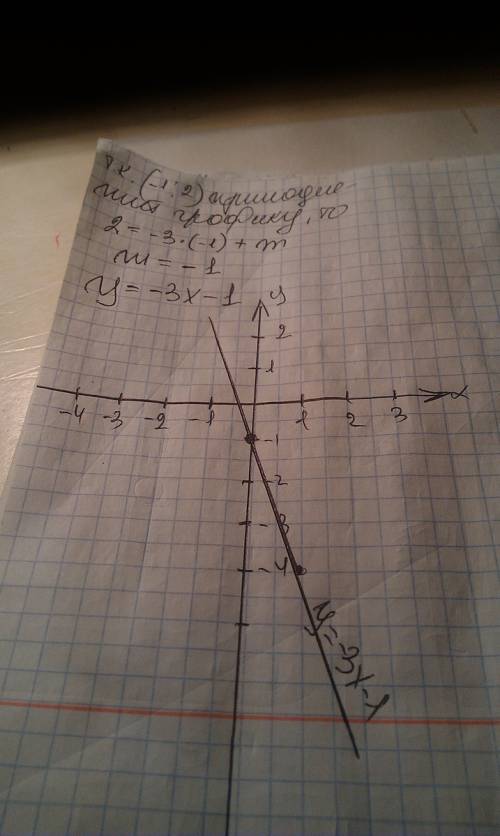 т.к. (-1; 2) принадле-
жит графику, то
2 = -3·(-1) + m
m = -1
y = -3x-1
y
2
1
-4 -3 -2 -1 1 2 3 x
-1
-2
-3
-4
y=-3x-1